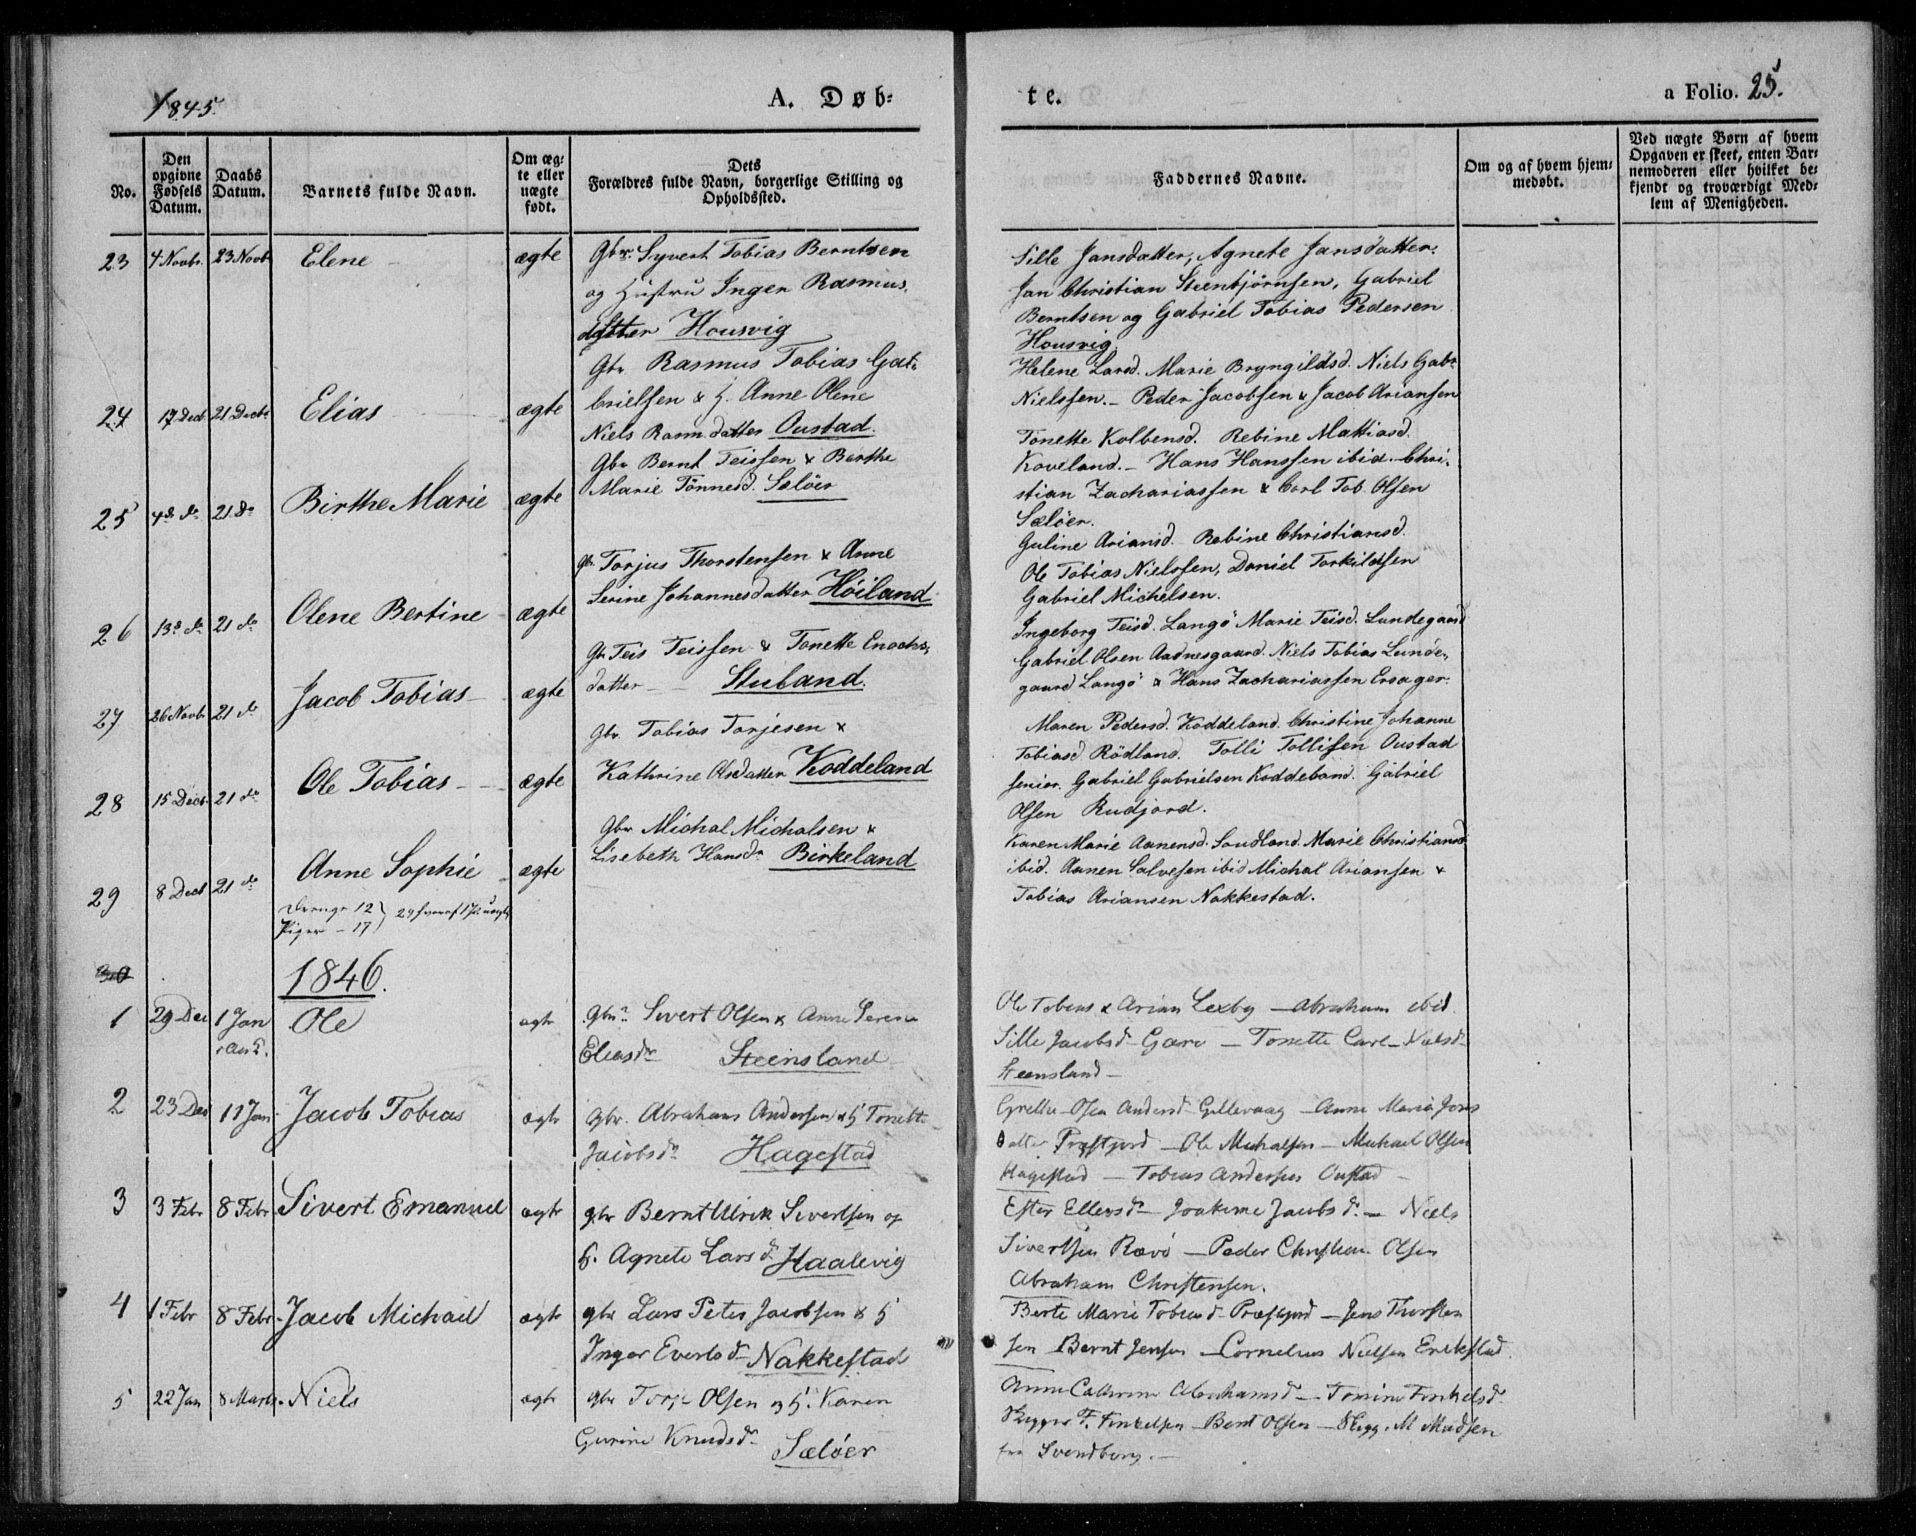 1845.
A. Døb-
te.
a Folio. 25.
No.
Den opgivne Fødsels Datum.
Daabs Datum.
Barnets fulde Navn.
Om ægte eller uægte født.
Dets Forældres fulde Navn, borgerlige Stilling og Opholdssted.
Faddernes Navne.
Om og af hvem hjemmedøbt.
Ved uægte Børn af hvem Opgaven er skeet, enten Barnemoderen eller hvilket bekjendt og troværdigt Medlem af Menigheden.
23 4 Novbr. 23 Novb Elene ægte
Gbr. Syvert Tobias Berntsen
og Hustru Inger Rasmus-
datter Housvig
Sille Jansdatter, Agnete Jansdatter.
Jan Christian Steentjørnsen, Gabriel
Berntsen og Gabriel Tobias Pedersen
Housvig.
24 17 Decb 21 Decbr Elias ægte
Gbr. Rasmus Tobias Ga-
brielsen & H. Anne Olene
Niels Rasm datter Oustad.
Helene Larsd. Marie Bryngildsd. Niels Gabr.
Nielssen. Peder Jacobsen & Jacob Ariansen
25 4de do 21 Do Birthe Marie ægte
Gbr Bernt Teissen & Berthe
Marie Tönnesd. Selöer
Tonette Kolbensd. Rebine Mattiasd.
Koveland. - Hans Hanssen ibid. Chri-
stian Zachariassen & Carl Tob. Olsen
Selöer.
26 13de do 21 do Olene Bertine ægte
Gbr Torjus Thorstensen & Anne
Serine Johannesdatter Höiland
Guline Ariansd. Robine Christiansd.
Ole Tobias Nielssen, Daniel Torkildsen
Gabriel Michelsen.
27 26 Novb 21 do Jacob Tobias ægte
Gbr Teis Teissen & Tonette Enochs-
datter - Stuland.
Ingeborg Teisd. Langö Marie Teisd. Lundegaard
Gabriel Olsen Aadnesgaard. Niels Tobias Lunde-
gaard Langö & Hans Zachariassen Ersager.
28 15 Decb 21 do Ole Tobias ægte
Gbr. Tobias Torjesen &
Kathrine Olsdatter Koddeland
Maren Pedersd. Koddeland. Christine Johanne
Tobiasd Rödland. Tolli Tollissen Oustad
senior. Gabriel Gabrielsen Koddeland. Gabriel
Olsen Rudjord.
29 8 Decb 21 do Anne Sophie ægte
Gbr Michal Michalsen &
Lisebeth Hansdr Birkeland
Karen Marie Aanensd. Soudland. Marie Christiansd
ibid. Aanen Salvesen ibid Michal Ariansen &
Tobias Ariansen Nakkestad.
Drenge 12 } 29 hvoraf 1 P. uægte
Piger - 17
30
1846.
1 29 Dec 1 Jan Ole ægte
Gbr. Sivert Olsen & Anne Serine
Eliasdr Steensland
Ole Tobias & Arian Lexby - Abraham ibid
Sille Jacobsd - Gare - Tonette Carl - Nielsd
Steensland -
2 23 Dec 11 Jan Jacob Tobias ægte
Gbr. Abraham Andersen & H Tonette
Jacobsdr Hagestad
Grethe Andersd Gillevaag - Anne Maria Jons
datter Præstjord - Ole Michalsen - Michael Olsen
Hagestad - Tobias Andersen Oustad -
3 3 Febr 8 Febr Sivert Emanuel ægte
gbr Bernt Ulrik Sivertsen og
H. Agnete Larsdr Haalevig
Ester Ellersdr - Joakime Jacobsd. - Niels
Sivertsen Rævö - Peder Christian Olsen
Abraham Christensen.
4 1 Febr 8 Febr Jacob Michael ægte
gbr Lars Peter Jacobsen & H
Inger Evertsd Nakkestad
Berte Marie Tobiasd Præstjord - Jens Thorsten
sen Bernt Jensen - Cornelius Nielsen Erikstad.
5 22 Jan 8 Marts Niels ægte
gbr Torje Olsen og H. Karen
Gurine Knudsdr Sælöer
Anne Cathrine Abrahamsd - Tomine Tonkelsd.
Skipper T. Tonkelsen - Bernt Olsen - Skipp. M Madsen
fra Svendborg. -